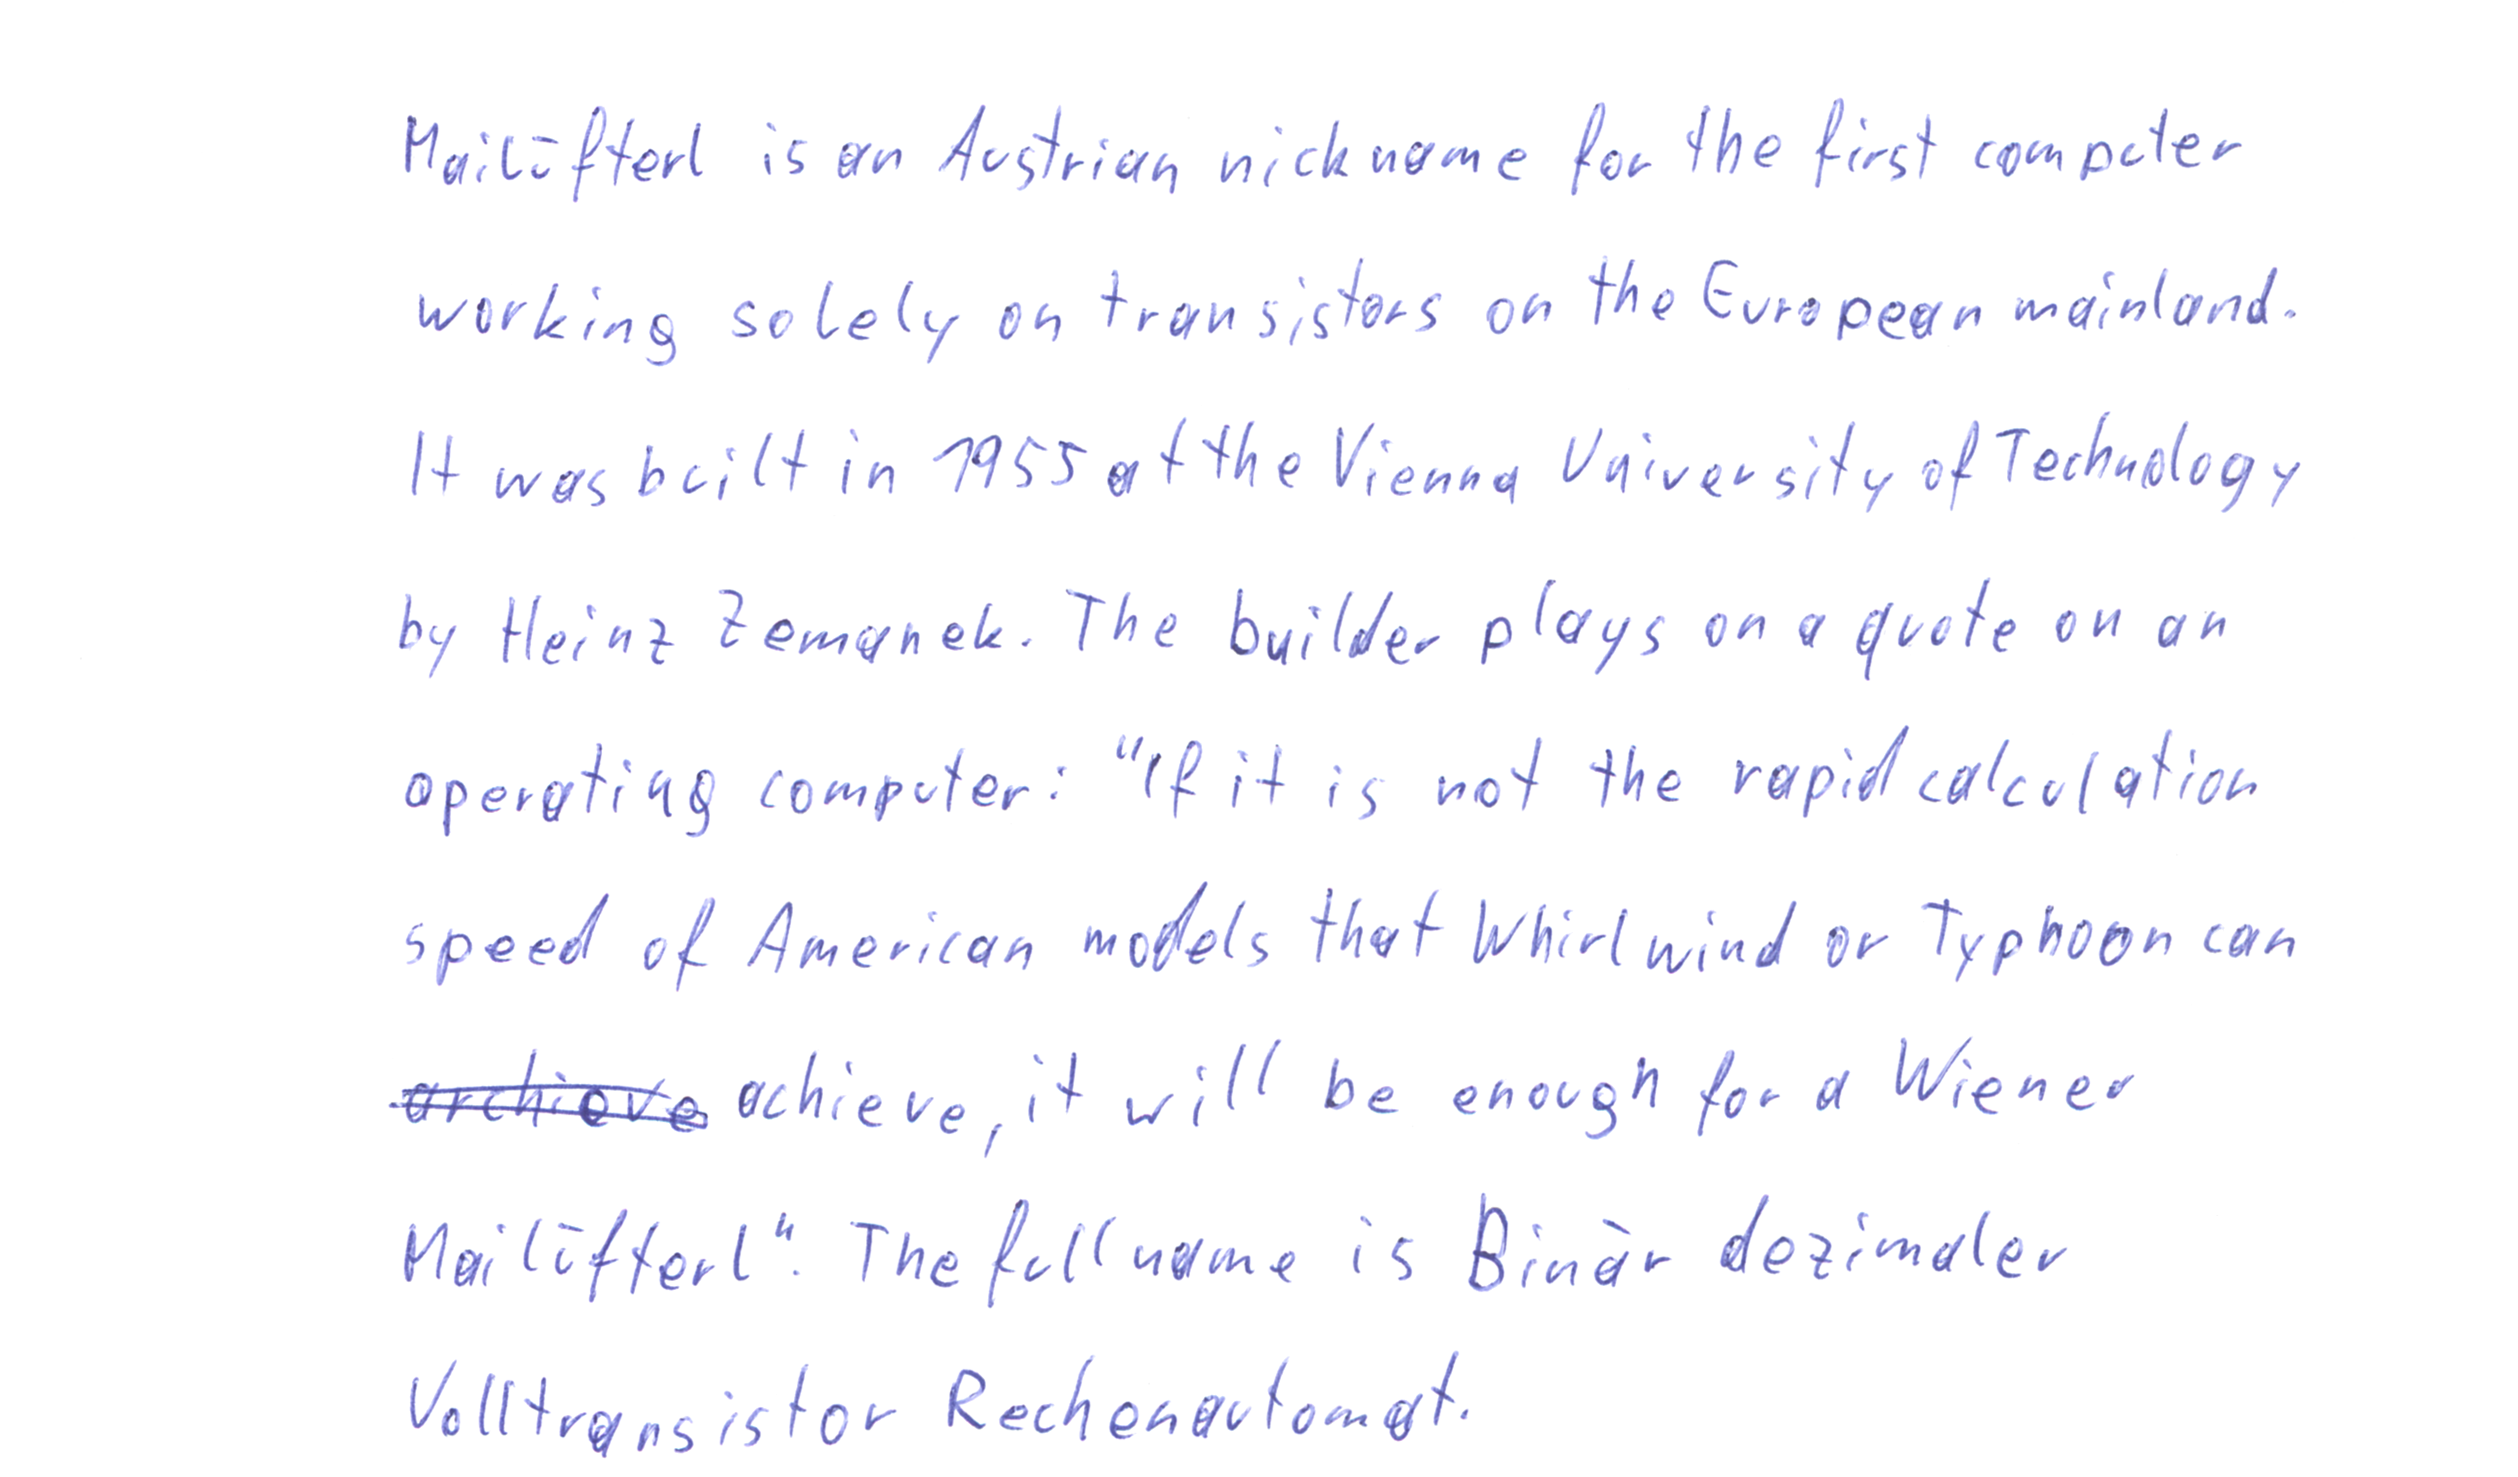 Mailüfterl is an Austrian nickname for the first computer
working solely on transistors on the European mainland.
It was built in 1955 at the Vienna University of Technology
by Heinz Zemanek. The builder plays on a quote on an
operating computer: "If it is not the rapid calculation
speed of American models that Whirlwind or Typhoon can
archieve achieve, it will be enough for a Wiener
Mailüfterl". The full name is Binär dezimaler
Volltransistor Rechenautomat.